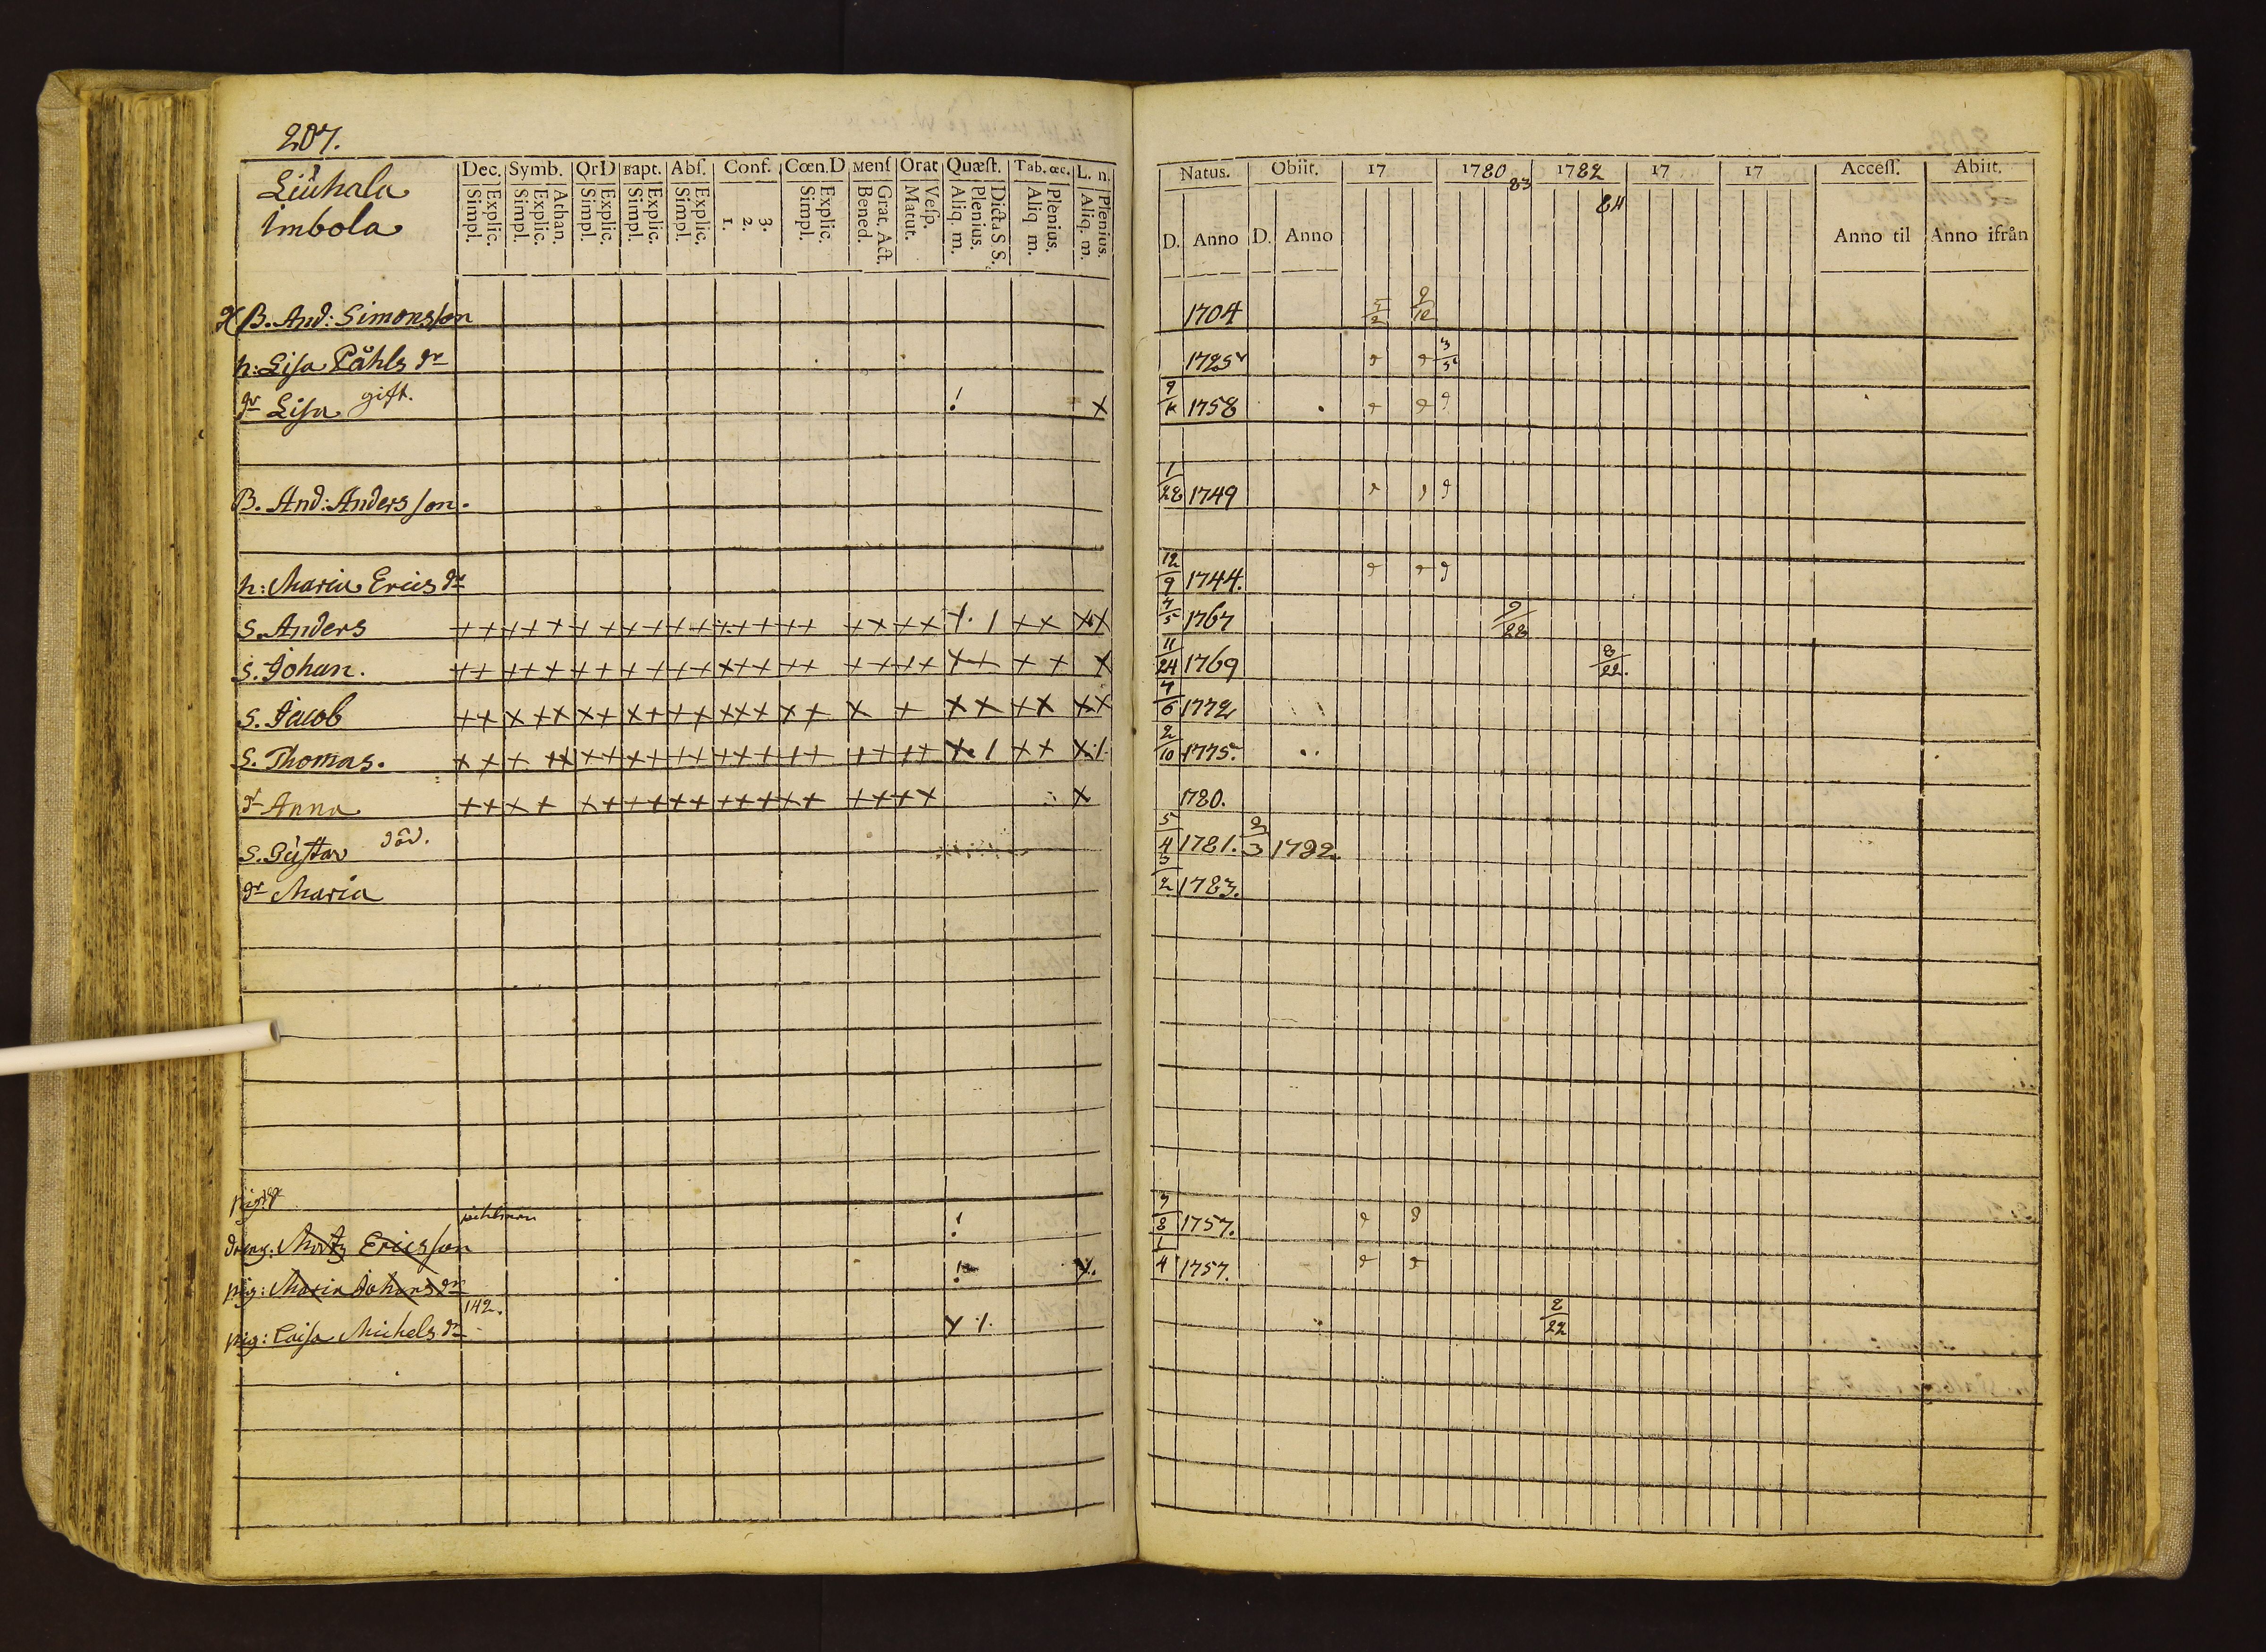 207.
Liuhala
Imbola
Dec. Symb. OrD Bapt. Abſ. Conf. Cœn.D Menſ Orat Quæſt. Tab. œc. L. n.
Simpl. Explic. Simpl. Explic. Athan. Simpl. Explic. Simpl. Explic. Simpl. Explic. 1. 2. 3. Simpl. Explic. Bened. Grat. Act. Matut. Veſp. Aliq. m. Plenius. Dicta S S. Aliq. m. Plenius. Aliq. m. Plenius.
Natus. Obiit. 17 1780 83 1782 84 17 17 Acceſſ. Abiit.
D. Anno D. Anno Anno til Anno ifrån
B. And: Simonsson 1704 5/2 9/12
h: Lisa Påhls dr 1725 3/5
dr Lisa gift. 1758
B. And: Andersson. 1/28 1749
h: Maria Erics dr 12/9 1744.
S. Anders 7/5 1767 9/28
S. Johan. 11/24 1769 8/22.
S. Jacob 7/6 1772
S. Thomas. 2/10 1775.
dr Anna 1780.
S. Gustav död. 5/4 1781. 2/3 1782
dr Maria 3/2 1783.
dreng: Mårtz Ericsson 7/8 1757.
pig: Maria Johans dr 1/4 1757.
142.
pig: Caisa Michels dr 2/22